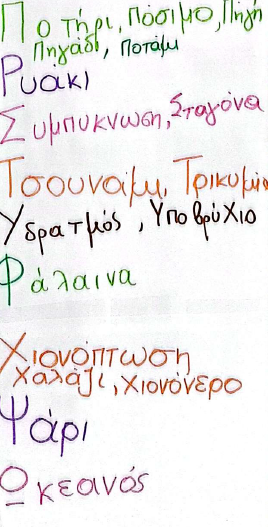 Ποτήρι, Πόσιμο, Πηγή
Πηγάδι, Ποτάμι
Ρυάκι
Συμπύκνωση, Σταγόνα
Τσουνάμι, Τρικυμία
Υδρατμός, Υποβρύχιο
Φάλαινα
Χιονόπτωση
Χαλάζι, Χιονόνερο
Ψάρι
Ωκεανός